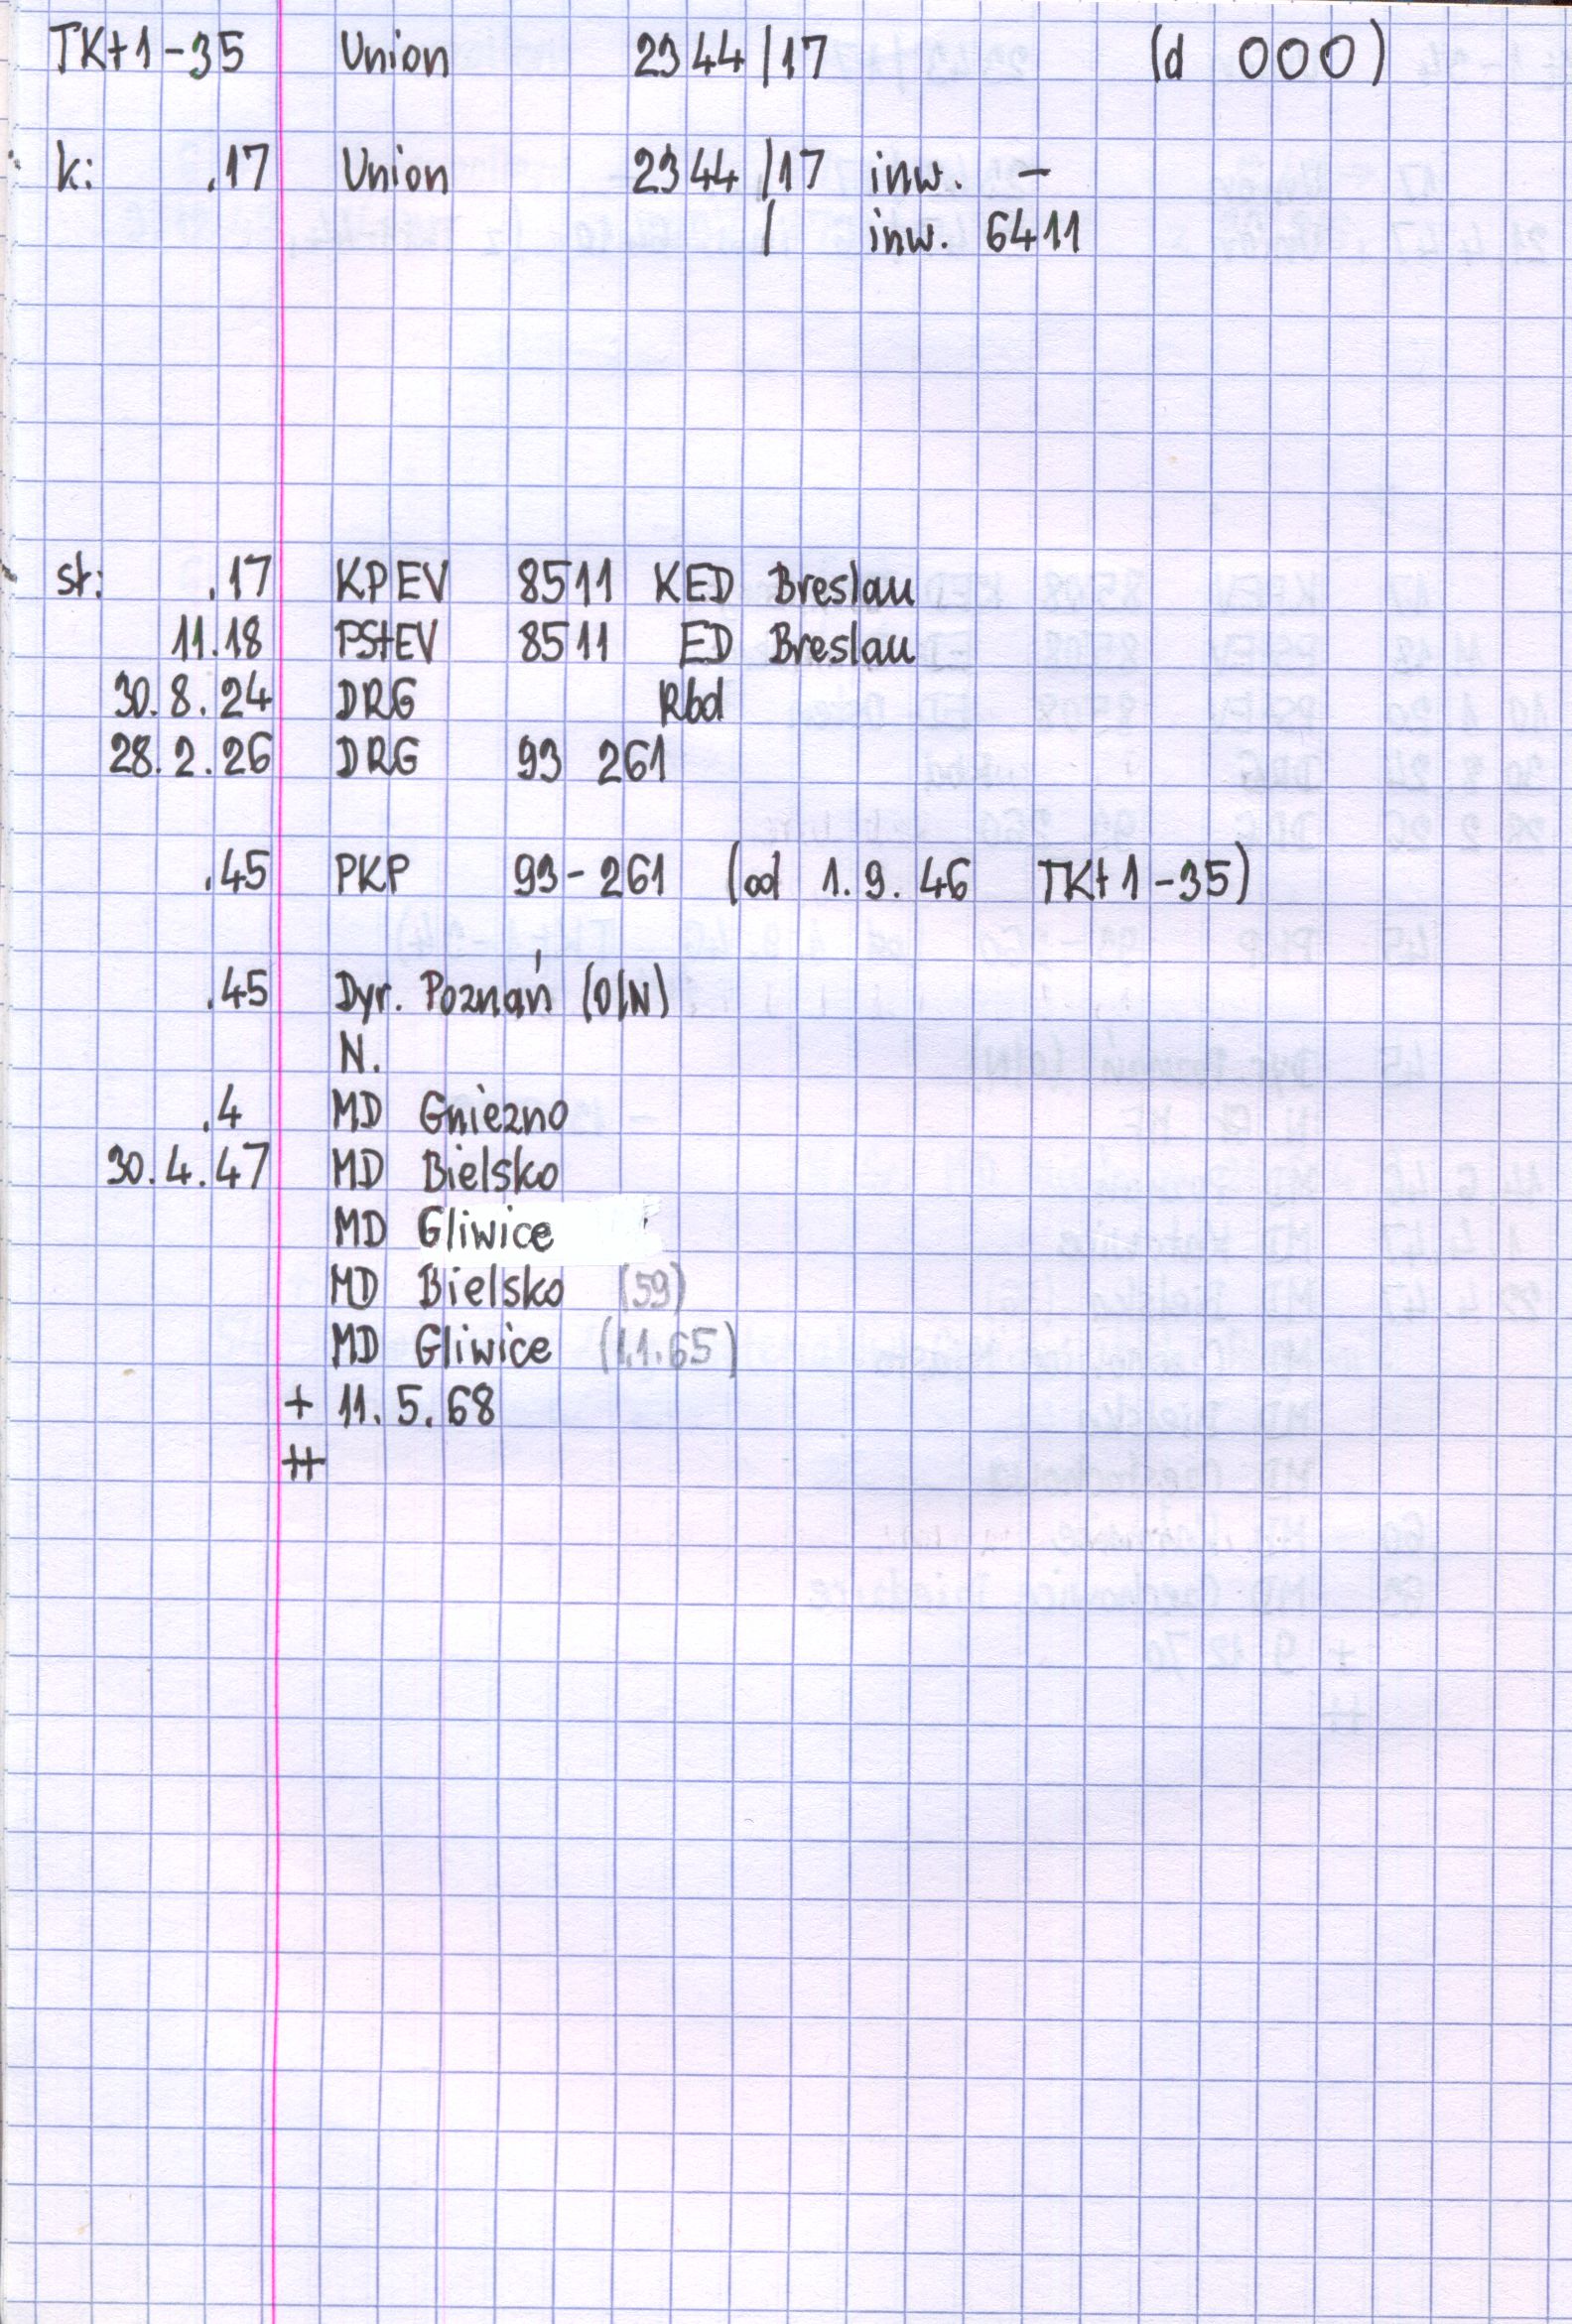 TKt1-35 Union 2344/17 (d 000)
k: .17 Union 2344/17 inw. -
/ inw. 6411
st: .17 KPEV 8511 KED Breslau
11.18 PStEV 8511 ED Breslau
30.8.24 DRG Rbd
28.2.26 DRG 93 261
.45 PKP 93-261 (od 1.9.46 TKt1-35)
.45 Dyr. Poznań (O/N)
N.
.4 MD Gniezno
30.4.47 MD Bielsko
MD Gliwice
MD Bielsko (59)
MD Gliwice (1.1.65)
+ 11.5.68
++